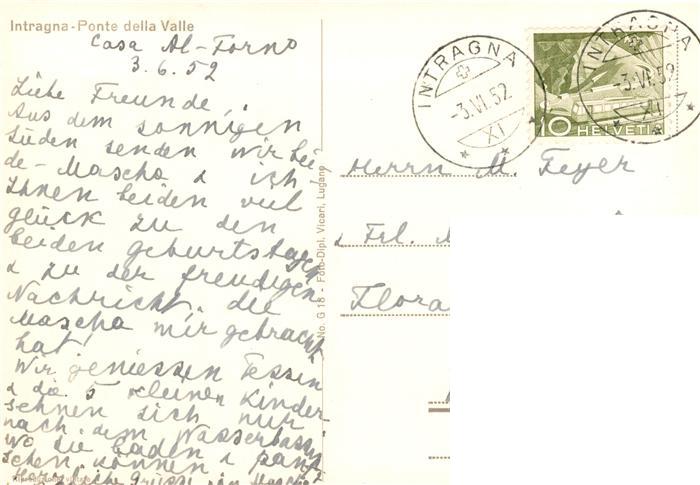 Intragna-Ponte della Valle
Casa Al-Forno
3.6.52
Liebe Freunde,
Aus dem sonnigen
Süden senden wir bei-
de-Mascha & ich-
Ihnen beiden viel
glück zu den
beiden geburtstagen
& zu der freudigen
Nachricht die
Mascha mir gebracht
hat!
Wir geniessen Tessin
& die 5 kleinen Kinder
sehnen sich nur
nach dem Wasserbassin
wo sie baden &
können &
Herzliche Grüsse von Mascha
No. G 18 - Foto-Dipl. Vicari, Lugano
INTRAGNA
-3.VI.52
XI
INTRAGNA
-3.VI.52
XI
10 HELVETIA
Herrn M. Feyer
& Frl.
Flora